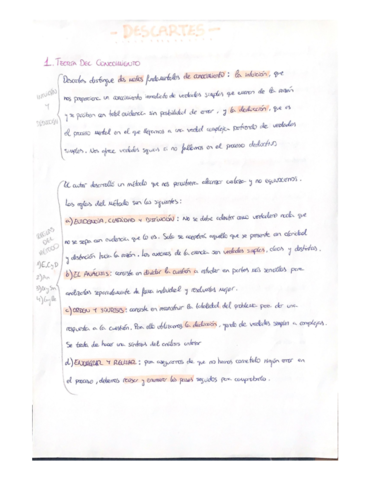 - DESCARTES -
1. TEORÍA DEL CONOCIMIENTO
Descartes distingue dos modos fundamentales de conocimiento: la intuición, que
nos proporciona un conocimiento inmediato de verdades simples que vienen de la razón
y se presentan con total evidencia sin posibilidad de error, y la deducción, que es
el proceso mental en el que llegamos a una verdad compleja partiendo de verdades
simples. Nos ofrece verdades seguras si no fallamos en el proceso deductivo.
INTUICIÓN
Y
DEDUCCIÓN
El autor desarrolló un método que nos permitiera alcanzar certezas y no equivocarnos.
Las reglas del método son las siguientes:
a) EVIDENCIA, CLARIDAD Y DISTINCIÓN: No se debe admitir como verdadero nada que
no se sepa con evidencia que lo es. Solo se aceptará aquello que se presente con claridad
y distinción para la razón. Las nociones de la ciencia son verdades simples, claras y distintas.
b) EL ANÁLISIS: consiste en dividir la cuestión a estudiar en partes más sencillas para
analizarlas separadamente de forma individual y resolverlas mejor.
c) ORDEN Y SÍNTESIS: consiste en reconstruir la totalidad del problema para dar una
respuesta a la cuestión. Para ello utilizamos la deducción, yendo de verdades simples a complejas.
Se trata de hacer una síntesis del análisis anterior
d) ENUMERAR Y REVISAR: para asegurarnos de que no hemos cometido ningún error en
el proceso, debemos revisar y enumerar los pasos seguidos para comprobarlo.
REGLAS
DEL
MÉTODO